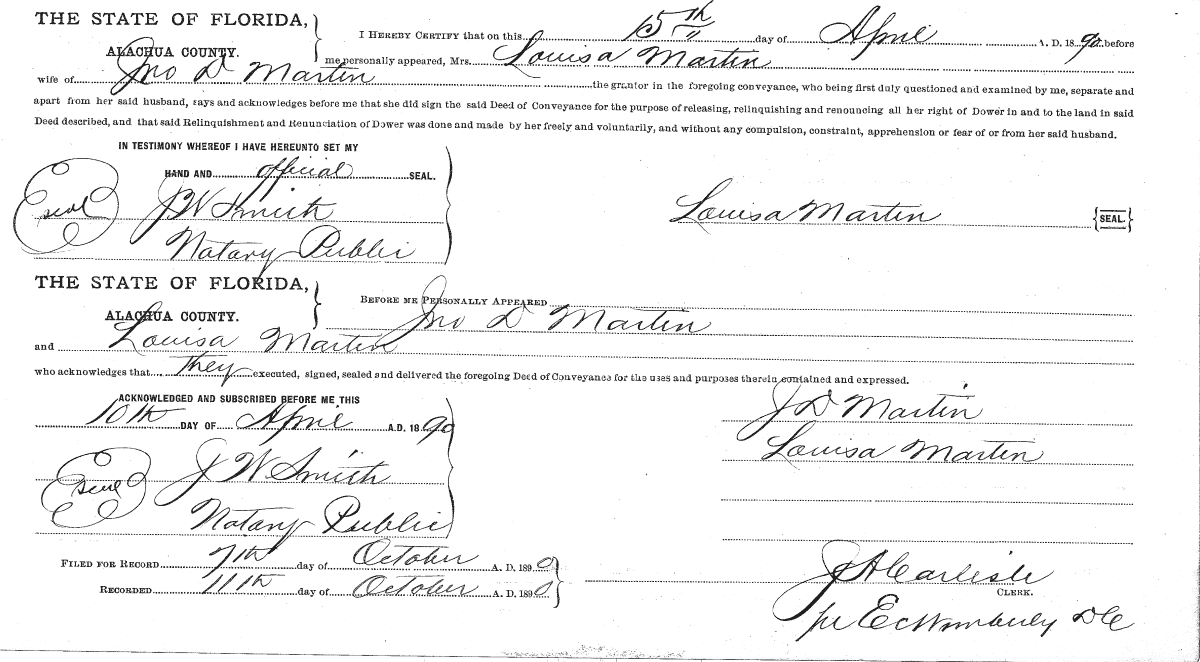 THE STATE OF FLORIDA,
ALACHUA COUNTY.
I HEREBY CERTIFY that on this 15th day of April A. D. 1890 before
me personally appeared, Mrs. Louisa Martin
wife of Jno D Martin the grantor in the foregoing conveyance, who being first duly questioned and examined by me, separate and
apart from her said husband, says and acknowledges before me that she did sign the said Deed of Conveyance for the purpose of releasing, relinquishing and renouncing all her right of Dower in and to the land in said
Deed described, and that said Relinquishment and Renunciation of Dower was done and made by her freely and voluntarily, and without any compulsion, constraint, apprehension or fear of or from her said husband.
IN TESTIMONY WHEREOF I HAVE HEREUNTO SET MY
HAND AND official SEAL.
seal J W Smith
Notary Public
Louisa Martin {SEAL}
THE STATE OF FLORIDA,
ALACHUA COUNTY.
BEFORE ME PERSONALLY APPEARED
Jno D Martin
and Louisa Martin
who acknowledges that They executed, signed, sealed and delivered the foregoing Deed of Conveyance for the uses and purposes therein contained and expressed.
ACKNOWLEDGED AND SUBSCRIBED BEFORE ME THIS
10th DAY OF April A.D. 1890
seal J W Smith
Notary Public
J D Martin
Louisa Martin
FILED FOR RECORD 7th day of October A. D. 1890
RECORDED 11th day of October A. D. 1890
J A Carlisle
CLERK.
pr E C Wimberly D C